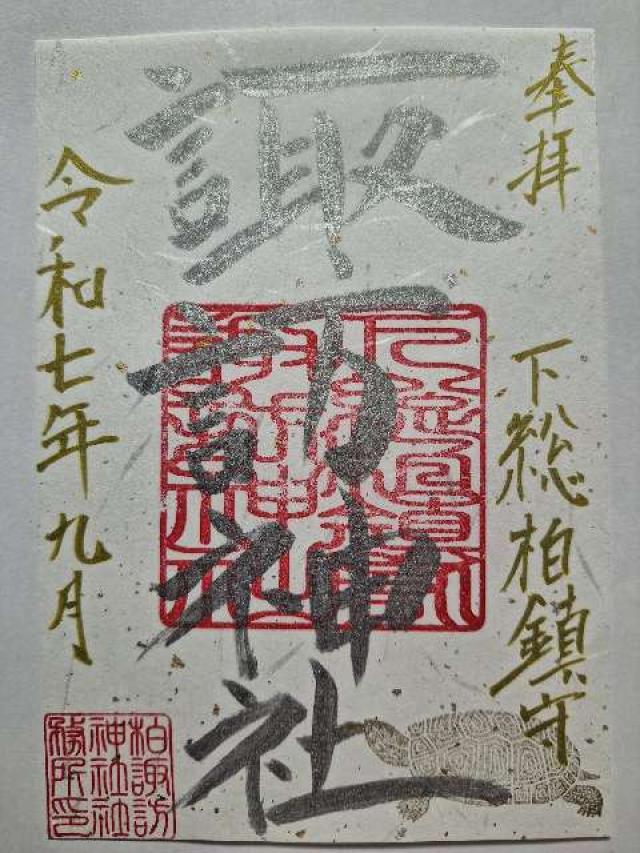 奉拝
下総柏鎮守
諏訪神社
令和七年九月
柏諏訪
神社社
務所印